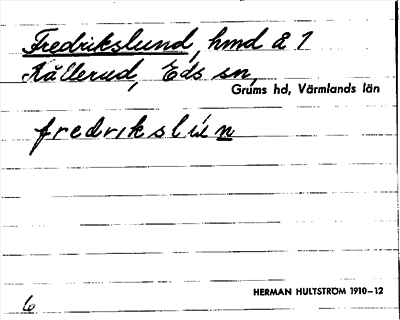 Fredrikslund, hmd å 1
Källerud, Eds sn,
Grums hd, Värmlands län
fredrikslún
HERMAN HULTSTRÖM 1910–12
6